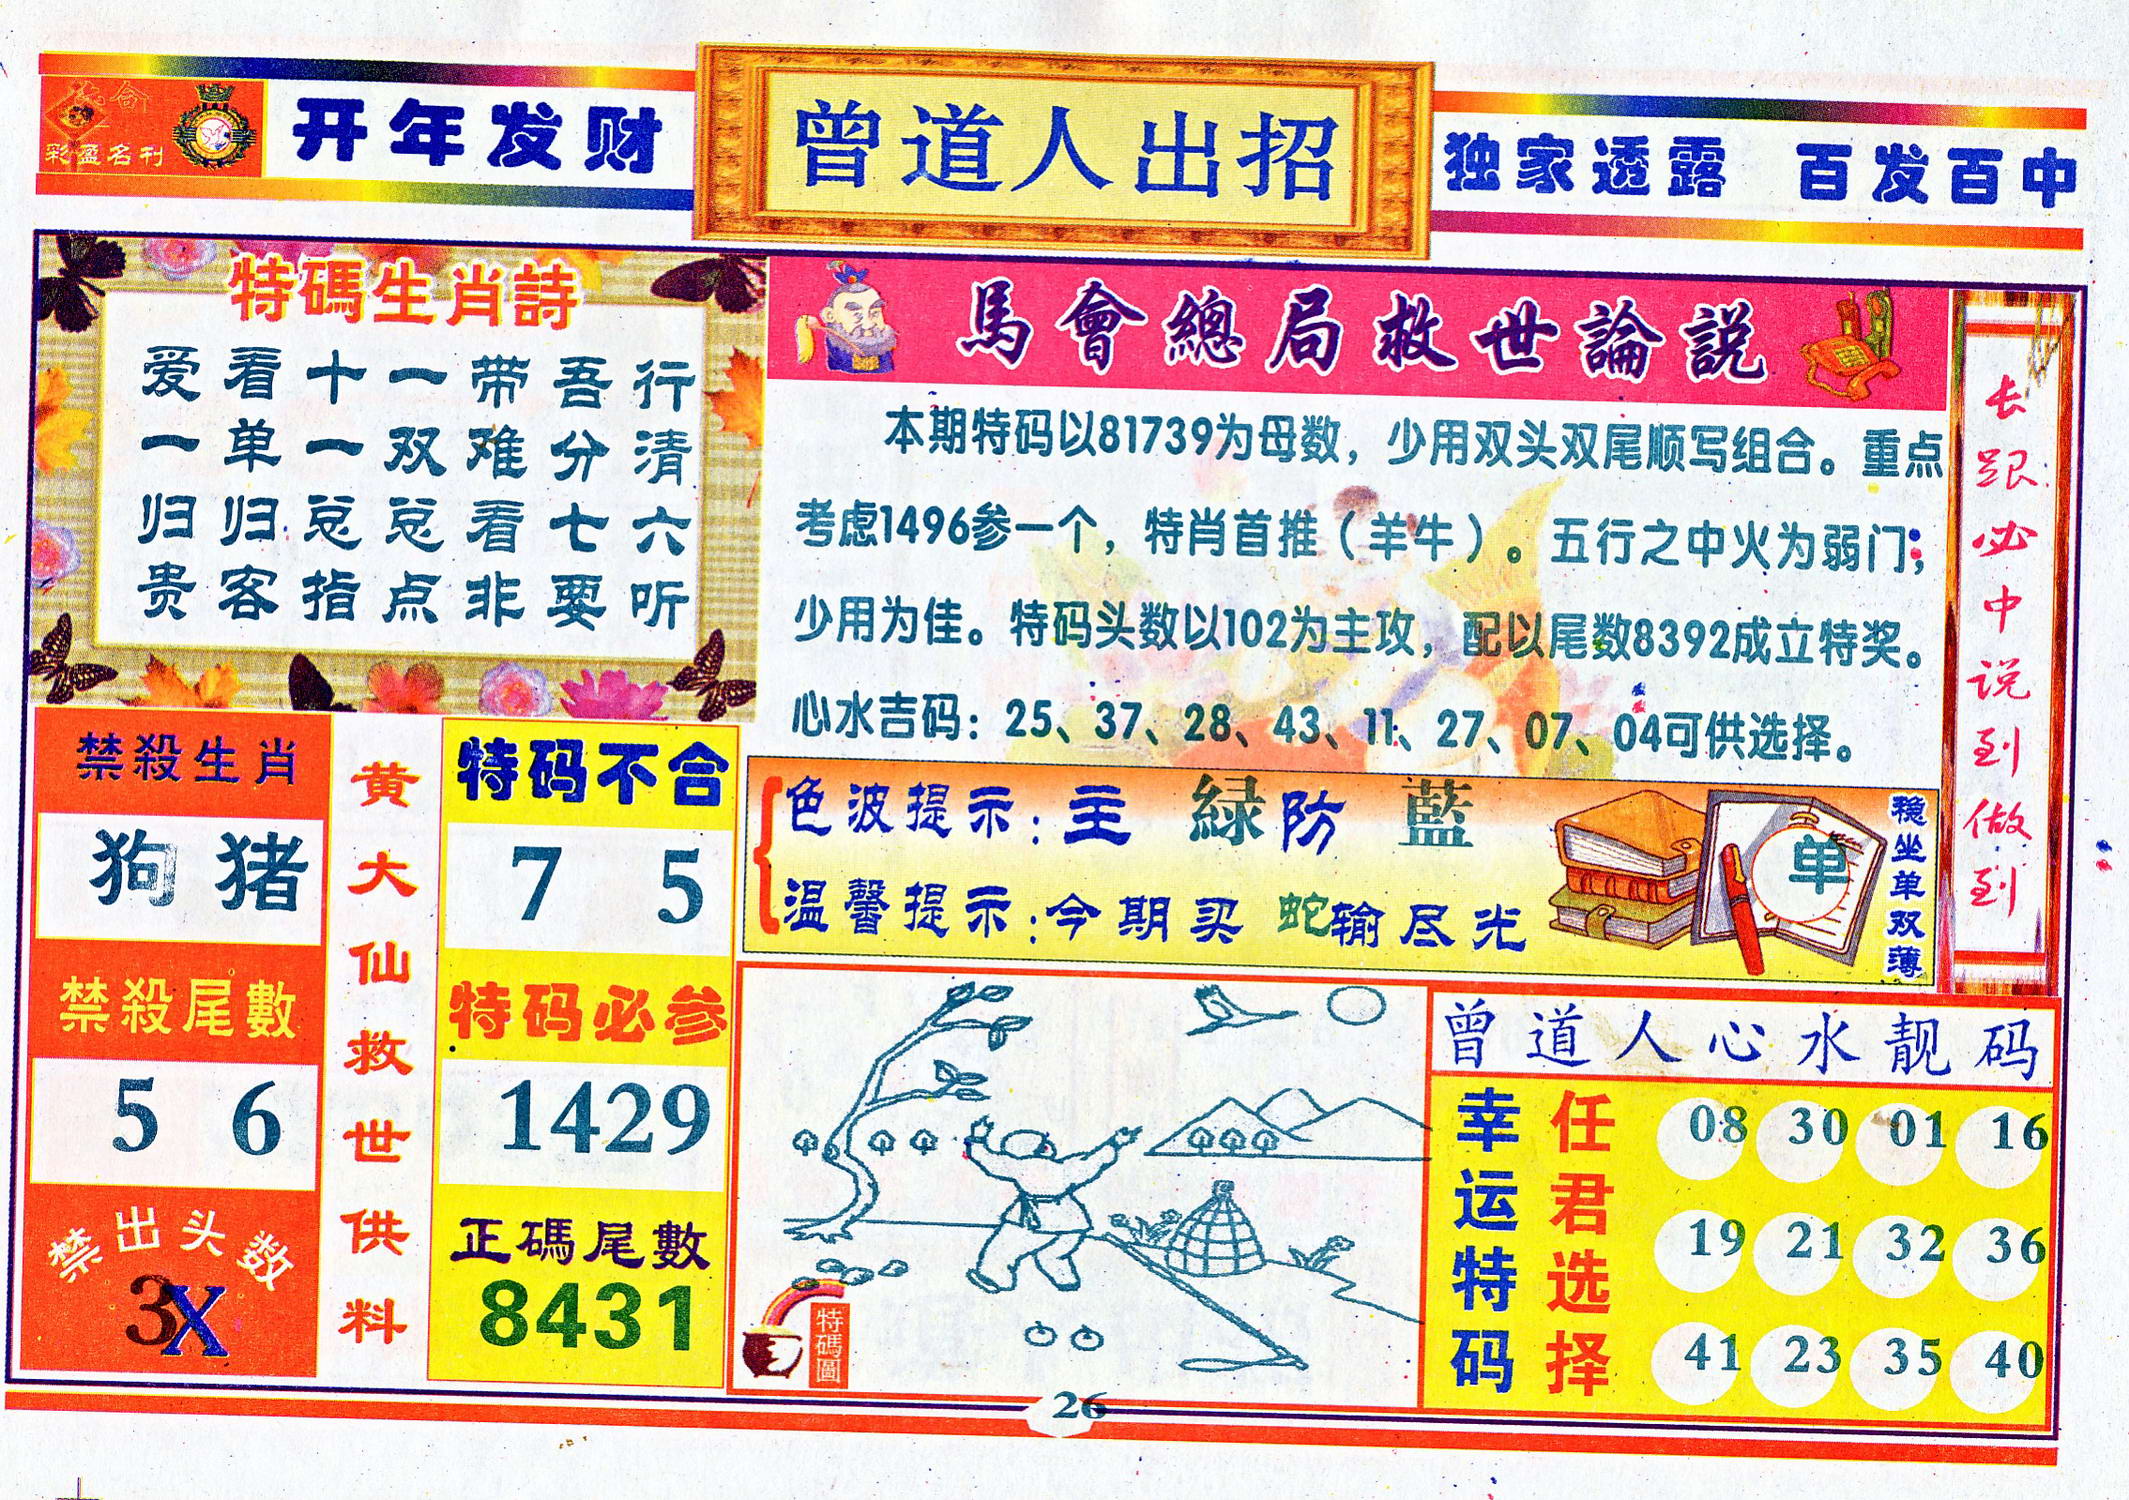 六合
彩盈名刊
开年发财
曾道人出招
独家透露 百发百中
特碼生肖詩
爱看十一带吾行
一单一双难分清
归归总总看七六
贵客指点非要听
馬會總局救世論説
本期特码以81739为母数，少用双头双尾顺写组合。重点
考虑1496参一个，特肖首推（羊牛）。五行之中火为弱门；
少用为佳。特码头数以102为主攻，配以尾数8392成立特奖。
心水吉码：25、37、28、43、11、27、07、04可供选择。
长跟必中说到做到
禁殺生肖
狗 猪
禁殺尾數
5 6
禁出头数
3X
黄大仙救世供料
特码不合
7 5
特码必参
1429
正碼尾數
8431
色波提示：主 緑 防 藍
温馨提示：今期买蛇输尽光
单
稳坐单双薄
特碼圖
曾道人心水靓码
幸运特码
任君选择
08 30 01 16
19 21 32 36
41 23 35 40
26